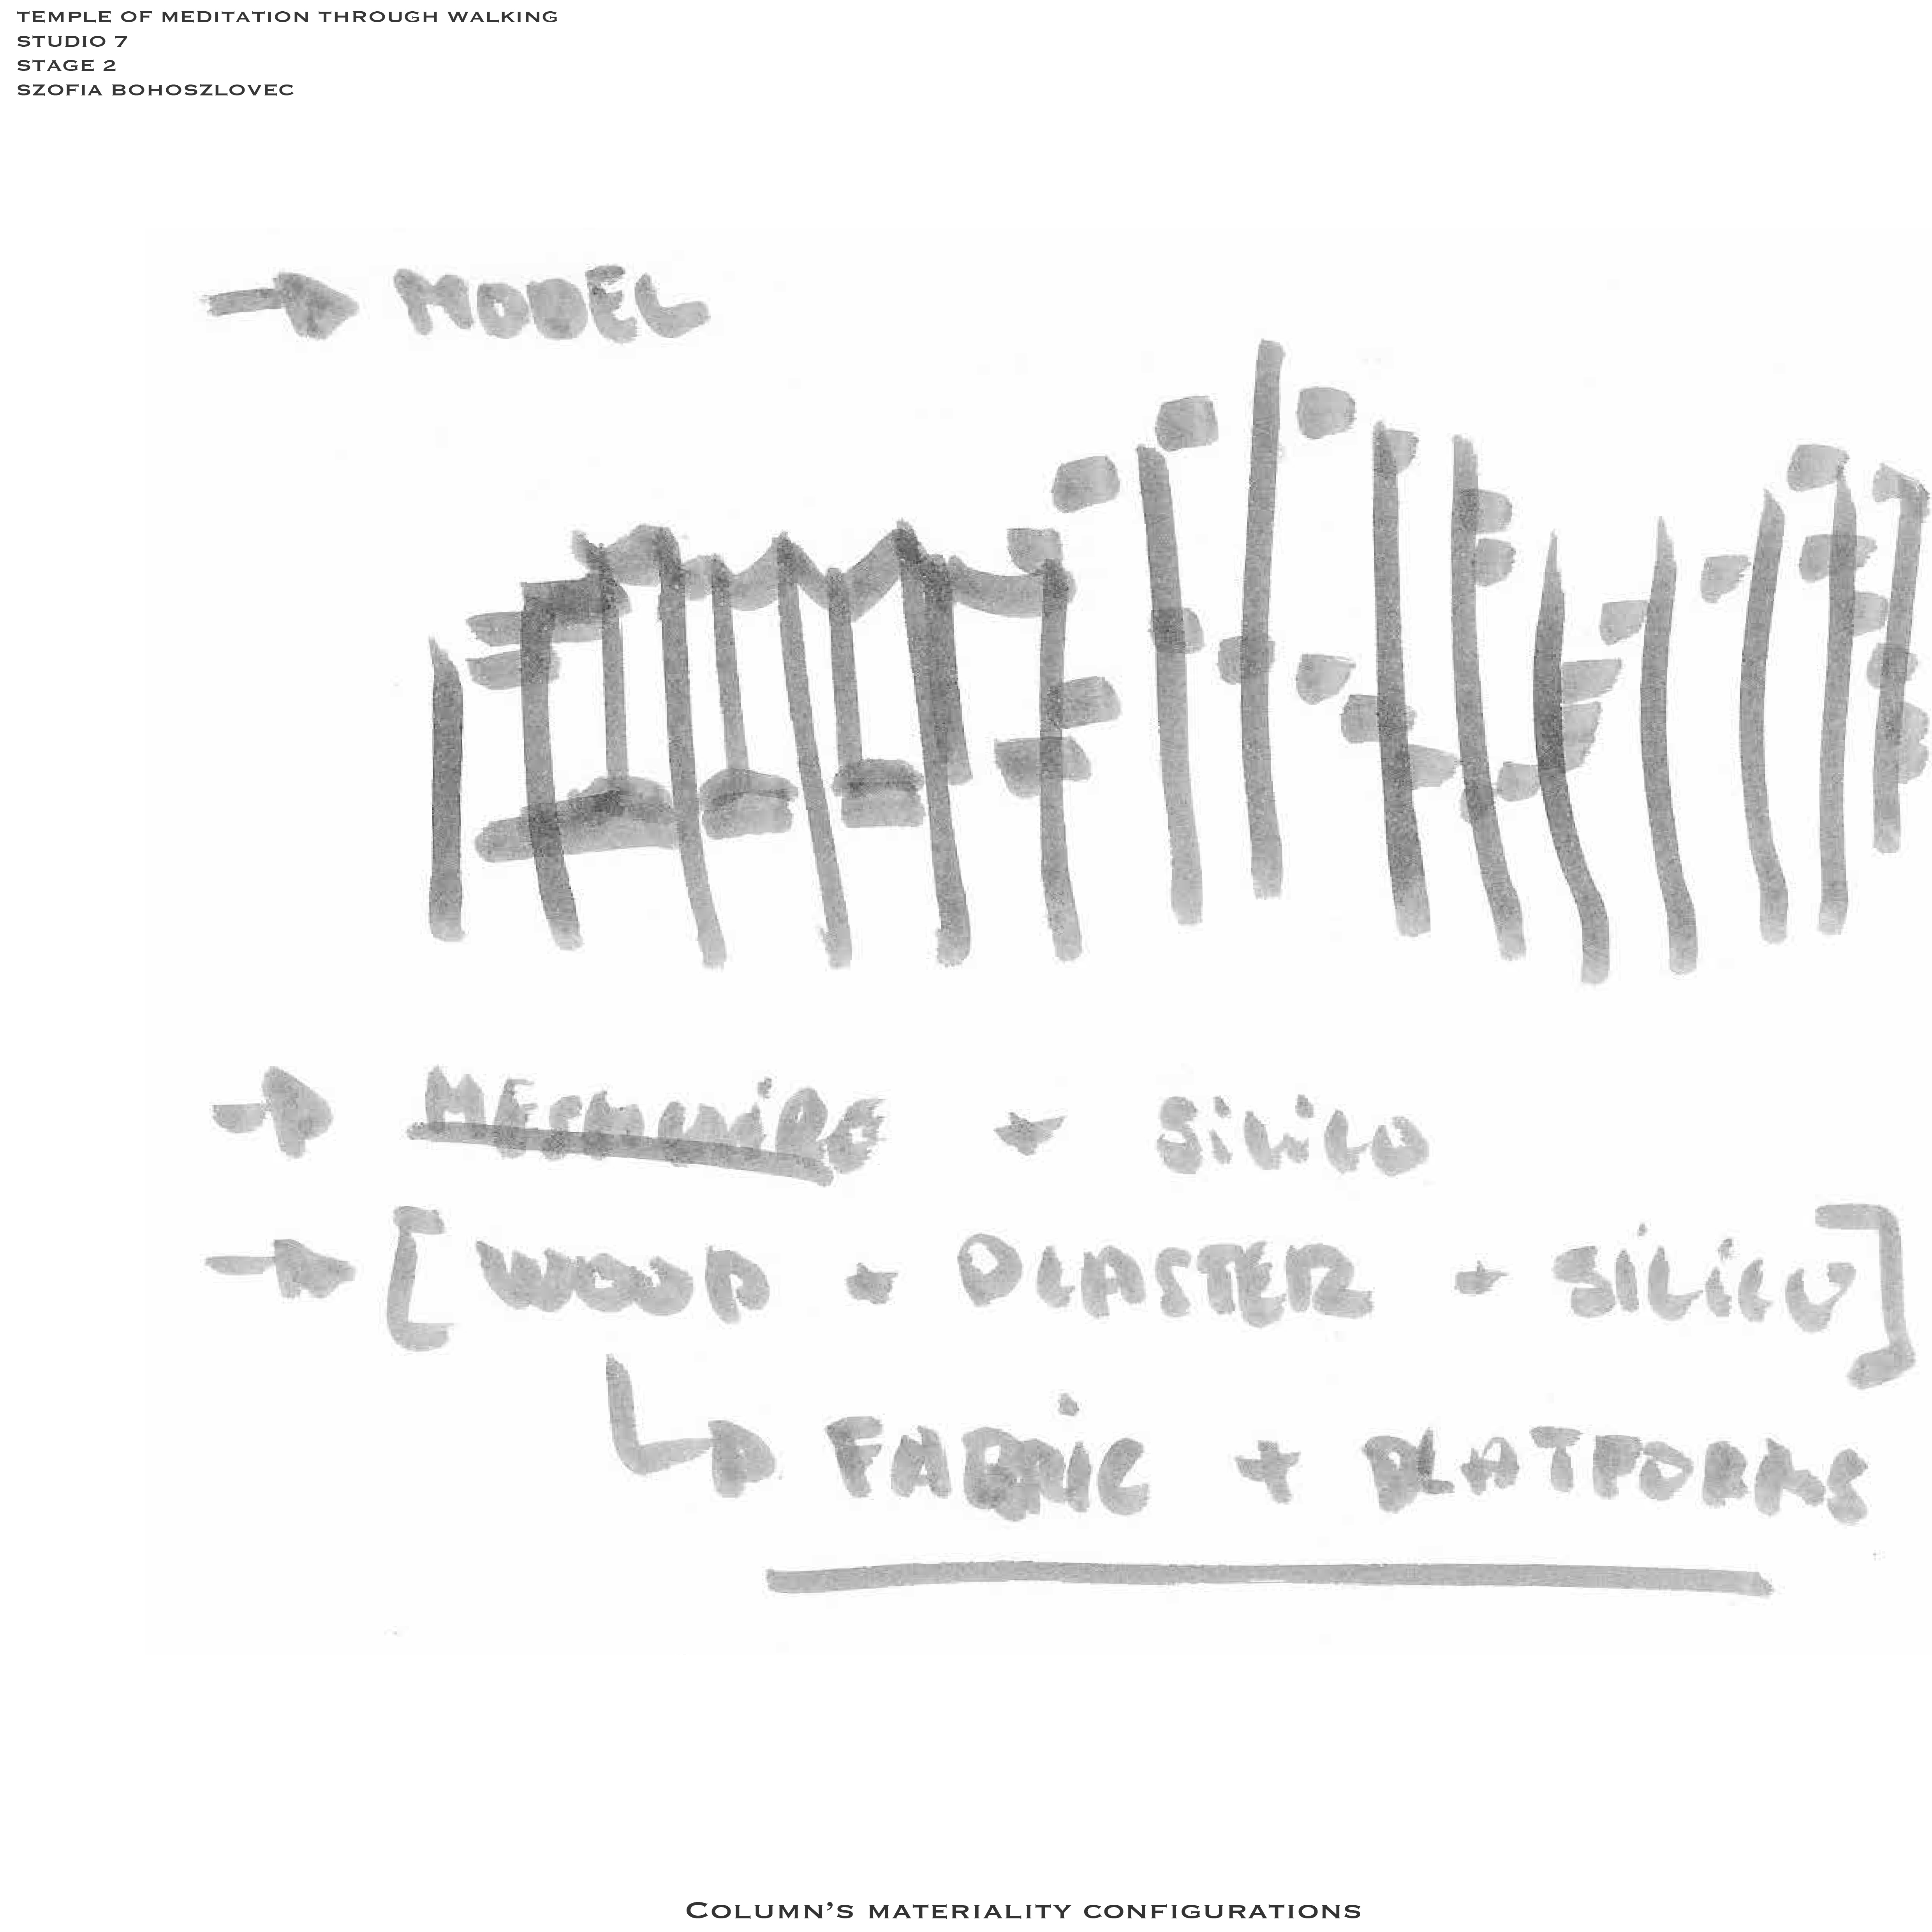 TEMPLE OF MEDITATION THROUGH WALKING
STUDIO 7
STAGE 2
SZOFIA BOHOSZLOVEC
→ MODEL
→ + SILICO
→ [WOOD + PLASTER + SILICO]
↳ FABRIC + PLATFORMS
COLUMN'S MATERIALITY CONFIGURATIONS